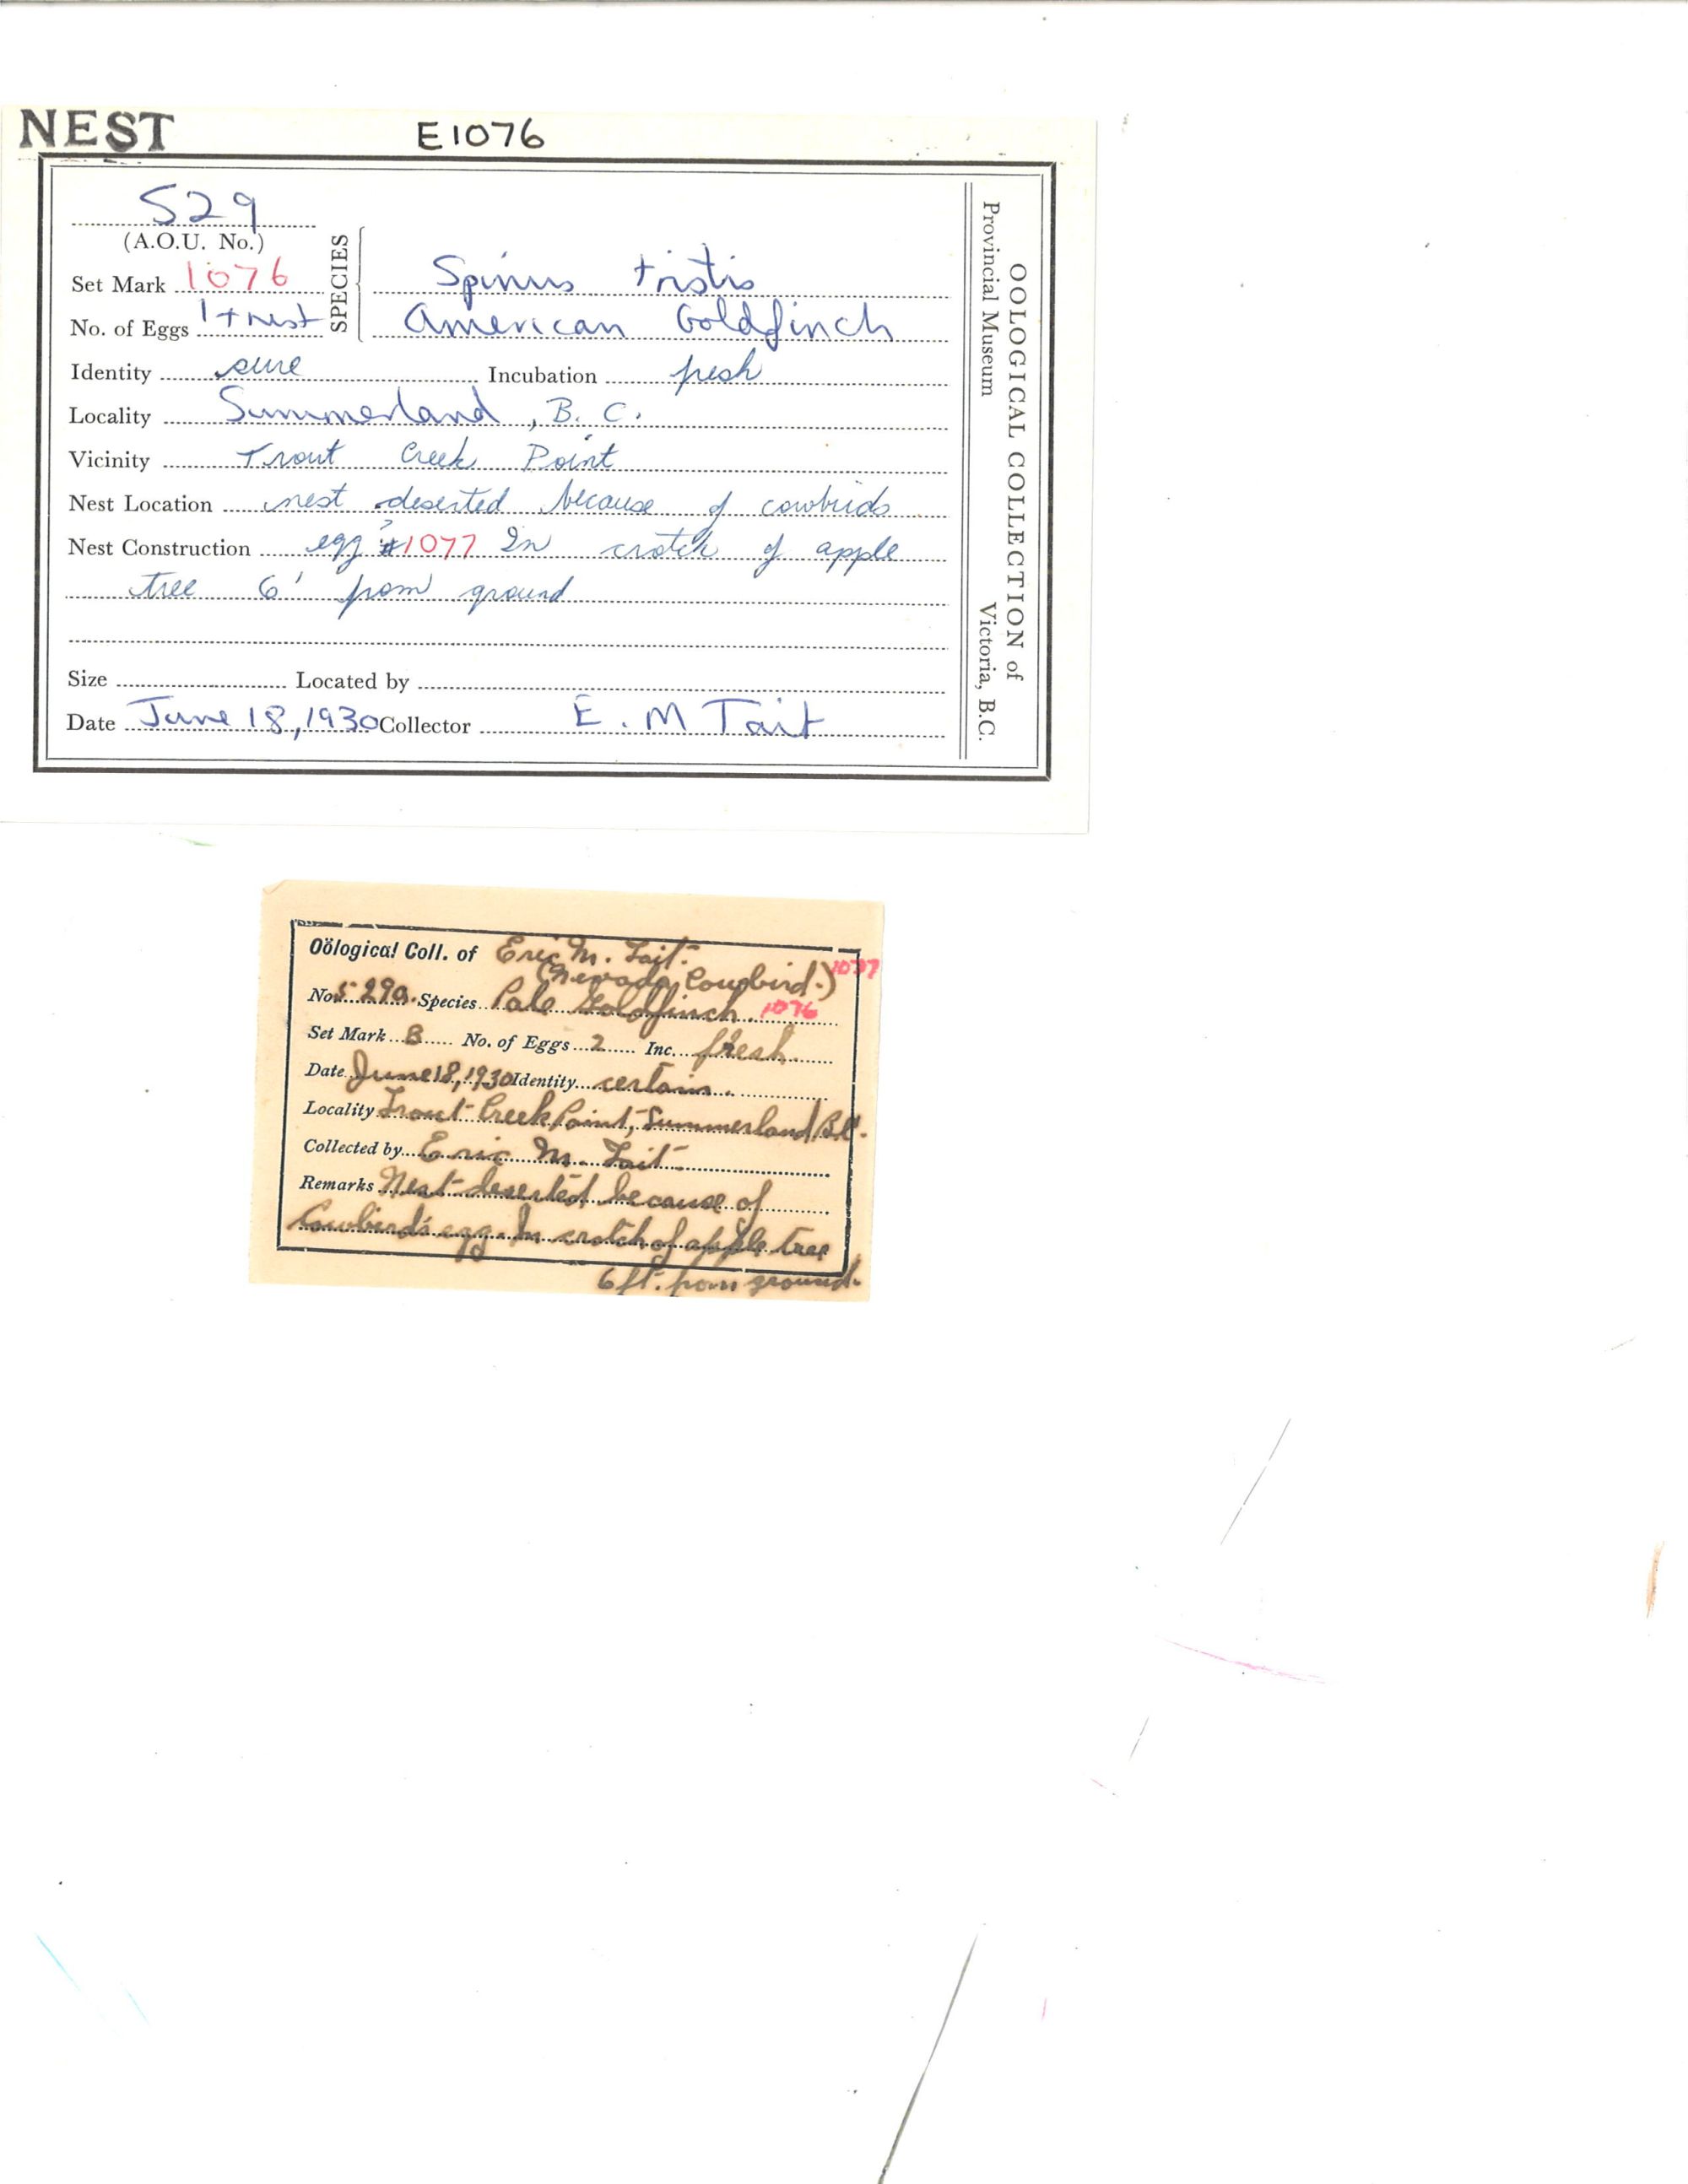 NEST E1076
529
(A.O.U. No.)
SPECIES
Set Mark 1076 Spinus tristis
No. of Eggs 1 + nest American Goldfinch
Identity sure Incubation fresh
Locality Summerland, B. C.
Vicinity Trout Creek Point
Nest Location nest deserted because of cowbirds
Nest Construction egg #1077 In crotch of apple
tree 6' from ground
Size Located by
Date June 18, 1930 Collector E. M Tait
OOLOGICAL COLLECTION of
Provincial Museum Victoria, B.C.
Oölogical Coll. of Eric M. Tait.
(Nevada Cowbird.) 1077
No. 529a. Species Pale Goldfinch. 1076
Set Mark B No. of Eggs 2 Inc. fresh
Date June 18, 1930 Identity certain.
Locality Trout Creek Point, Summerland B.C.
Collected by Eric M. Tait.
Remarks Nest deserted because of
Cowbird's egg. In crotch of apple tree
6 ft. from ground.